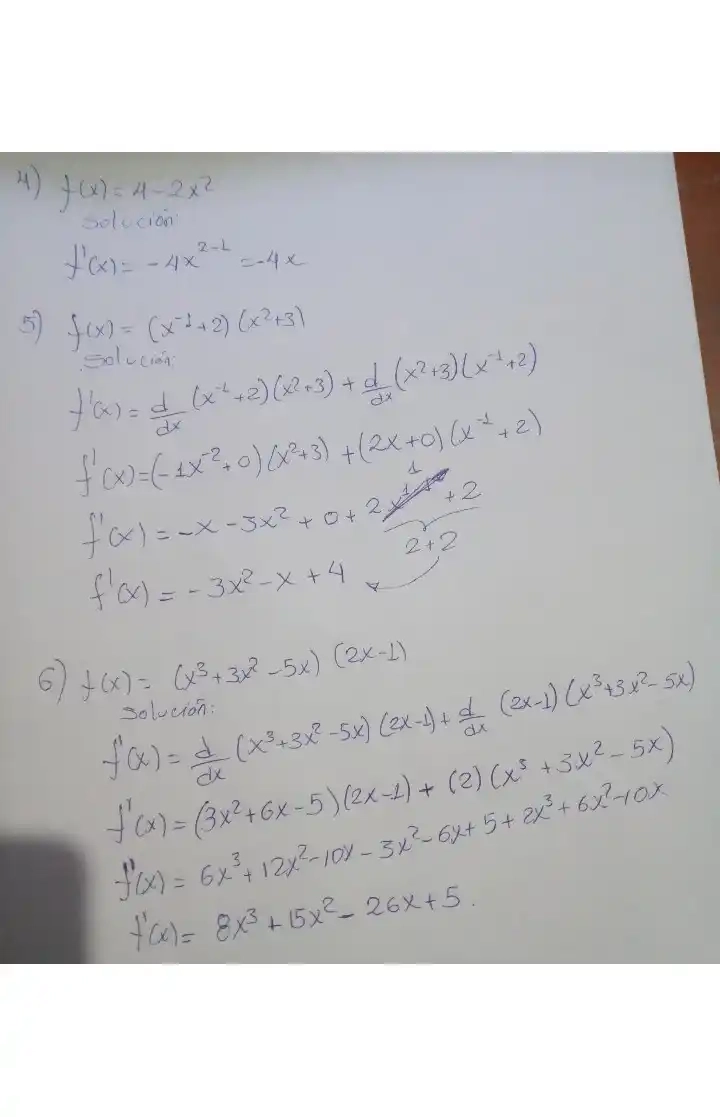 4) f(x) = 4 - 2x²
Solución:
f'(x) = -4x²⁻¹ = -4x
5) f(x) = (x⁻¹+2)(x²+3)
Solución:
f'(x) = d/dx (x⁻¹+2)(x²+3) + d/dx (x²+3)(x⁻¹+2)
f'(x) = (-1x⁻²+0)(x²+3) + (2x+0)(x⁻¹+2)
f'(x) = -x - 3x² + 0 + 2 +2
2+2
f'(x) = -3x² - x + 4
6) f(x) = (x³+3x²-5x)(2x-1)
Solución:
f'(x) = d/dx (x³+3x²-5x)(2x-1) + d/dx (2x-1)(x³+3x²-5x)
f'(x) = (3x²+6x-5)(2x-1) + (2)(x³+3x²-5x)
f'(x) = 6x³+12x²-10x-3x²-6x+5+2x³+6x²-10x
f'(x) = 8x³+15x²-26x+5.